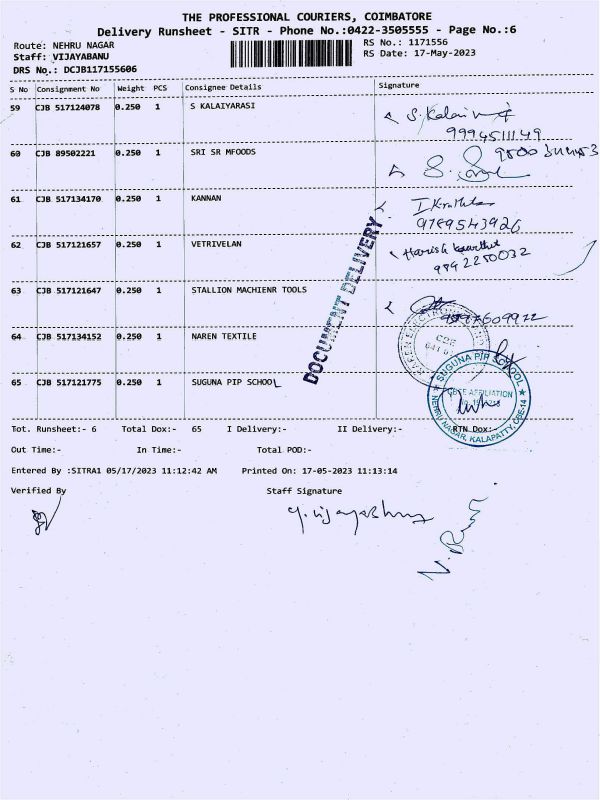 THE PROFESSIONAL COURIERS, COIMBATORE
Delivery Runsheet - SITR - Phone No.:0422-3505555 - Page No.:6
Route: NEHRU NAGAR
RS No.: 1171556
Staff: VIJAYABANU
RS Date: 17-May-2023
DRS No.: DCJB117155606
S No Consignment No Weight PCS Consignee Details Signature
59 CJB 517124078 0.250 1 S KALAIYARASI
9994511149
60 CJB 89502221 0.250 1 SRI SR MFOODS
61 CJB 517134170 0.250 1 KANNAN
9789543926
62 CJB 517121657 0.250 1 VETRIVELAN
Harish
9892250032
63 CJB 517121647 0.250 1 STALLION MACHIENR TOOLS
64 CJB 517134152 0.250 1 NAREN TEXTILE
65 CJB 517121775 0.250 1 SUGUNA PIP SCHOOL
DOCUMENT DELIVERY
CBE
SUGUNA PIP SCHOOL
AFFILIATION
NEHRU NAGAR, KALAPATTY, CBE-14
Tot. Runsheet:- 6 Total Dox:- 65 I Delivery:- II Delivery:- RTN Dox:-
Out Time:- In Time:- Total POD:-
Entered By :SITRA1 05/17/2023 11:12:42 AM Printed On: 17-05-2023 11:13:14
Verified By Staff Signature